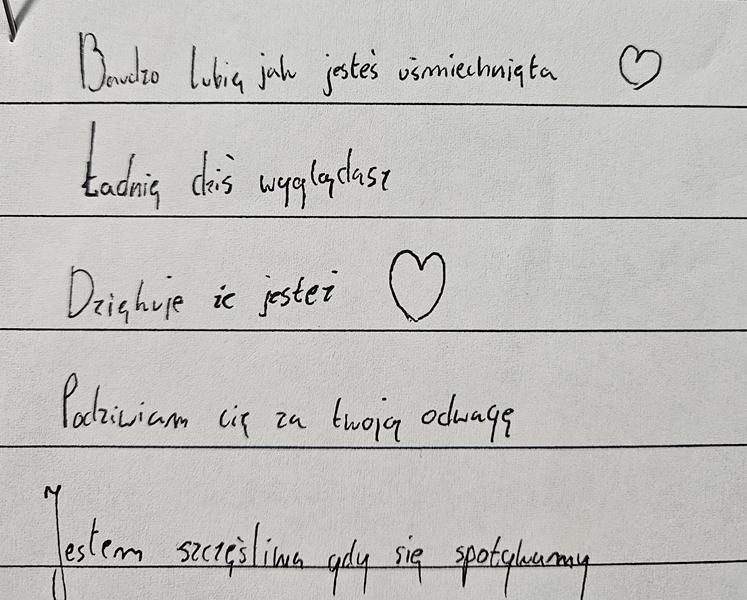 Bardzo lubię jak jesteś uśmiechnięta
Ładnię dziś wyglądasz
Dziękuje że jesteś
Podziwiam cię za twoją odwagę
Jestem szczęśliwa gdy się spotykamy